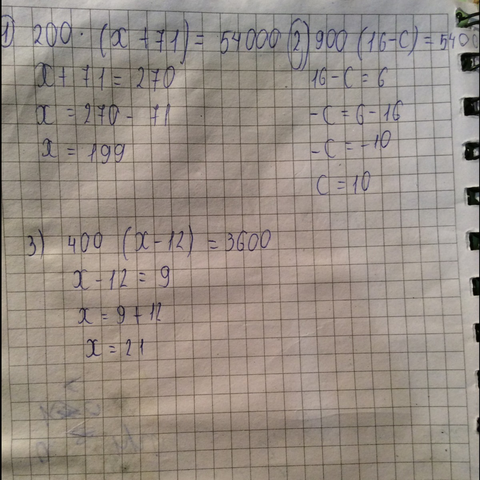 1) 200 · (x + 71) = 54000
x + 71 = 270
x = 270 - 71
x = 199
2) 900 (16 - c) = 5400
16 - c = 6
-c = 6 - 16
-c = -10
c = 10
3) 400 (x - 12) = 3600
x - 12 = 9
x = 9 + 12
x = 21